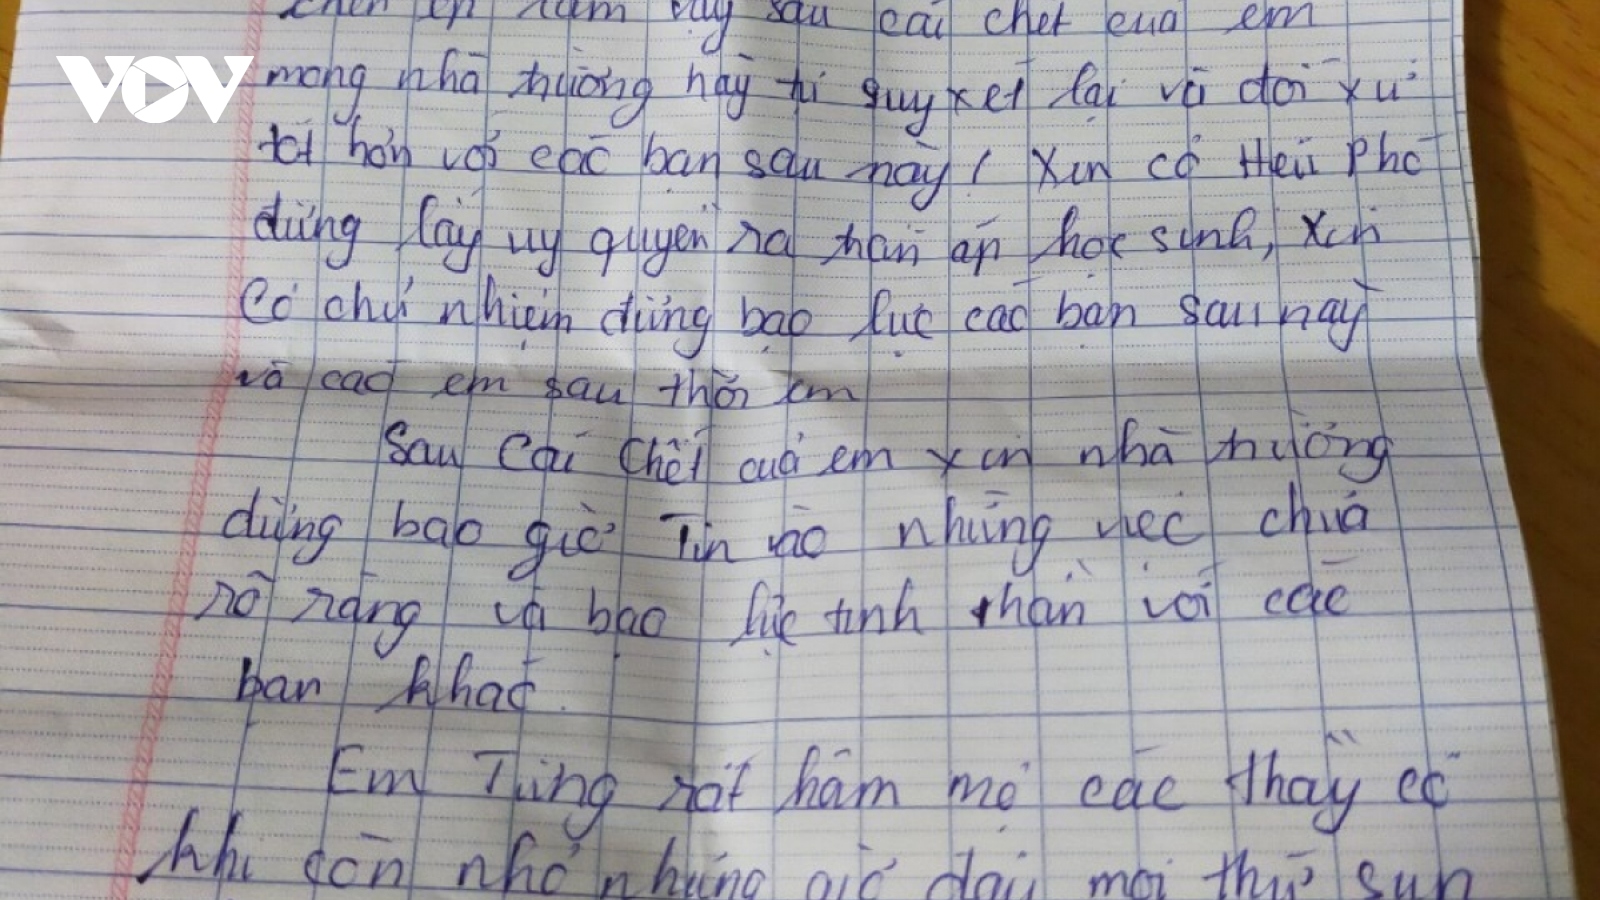 VOV
chèn ép năm vậy sau cái chết của em
mong nhà trường hãy tự suy xét lại và đối xử
tốt hơn với các bạn sau này! Xin cô Hiệu Phó
đừng lấy uy quyền ra trấn áp học sinh, xin
cô chủ nhiệm đừng bạo lực các bạn sau này
và các em sau thời em
Sau cái chết của em xin nhà trường
đừng bao giờ Tin vào những việc chưa
rõ ràng và bạo lực tinh thần với các
bạn khác.
Em Từng rất hâm mộ các thầy cô
khi còn nhỏ nhưng giờ đây mọi thứ sụp